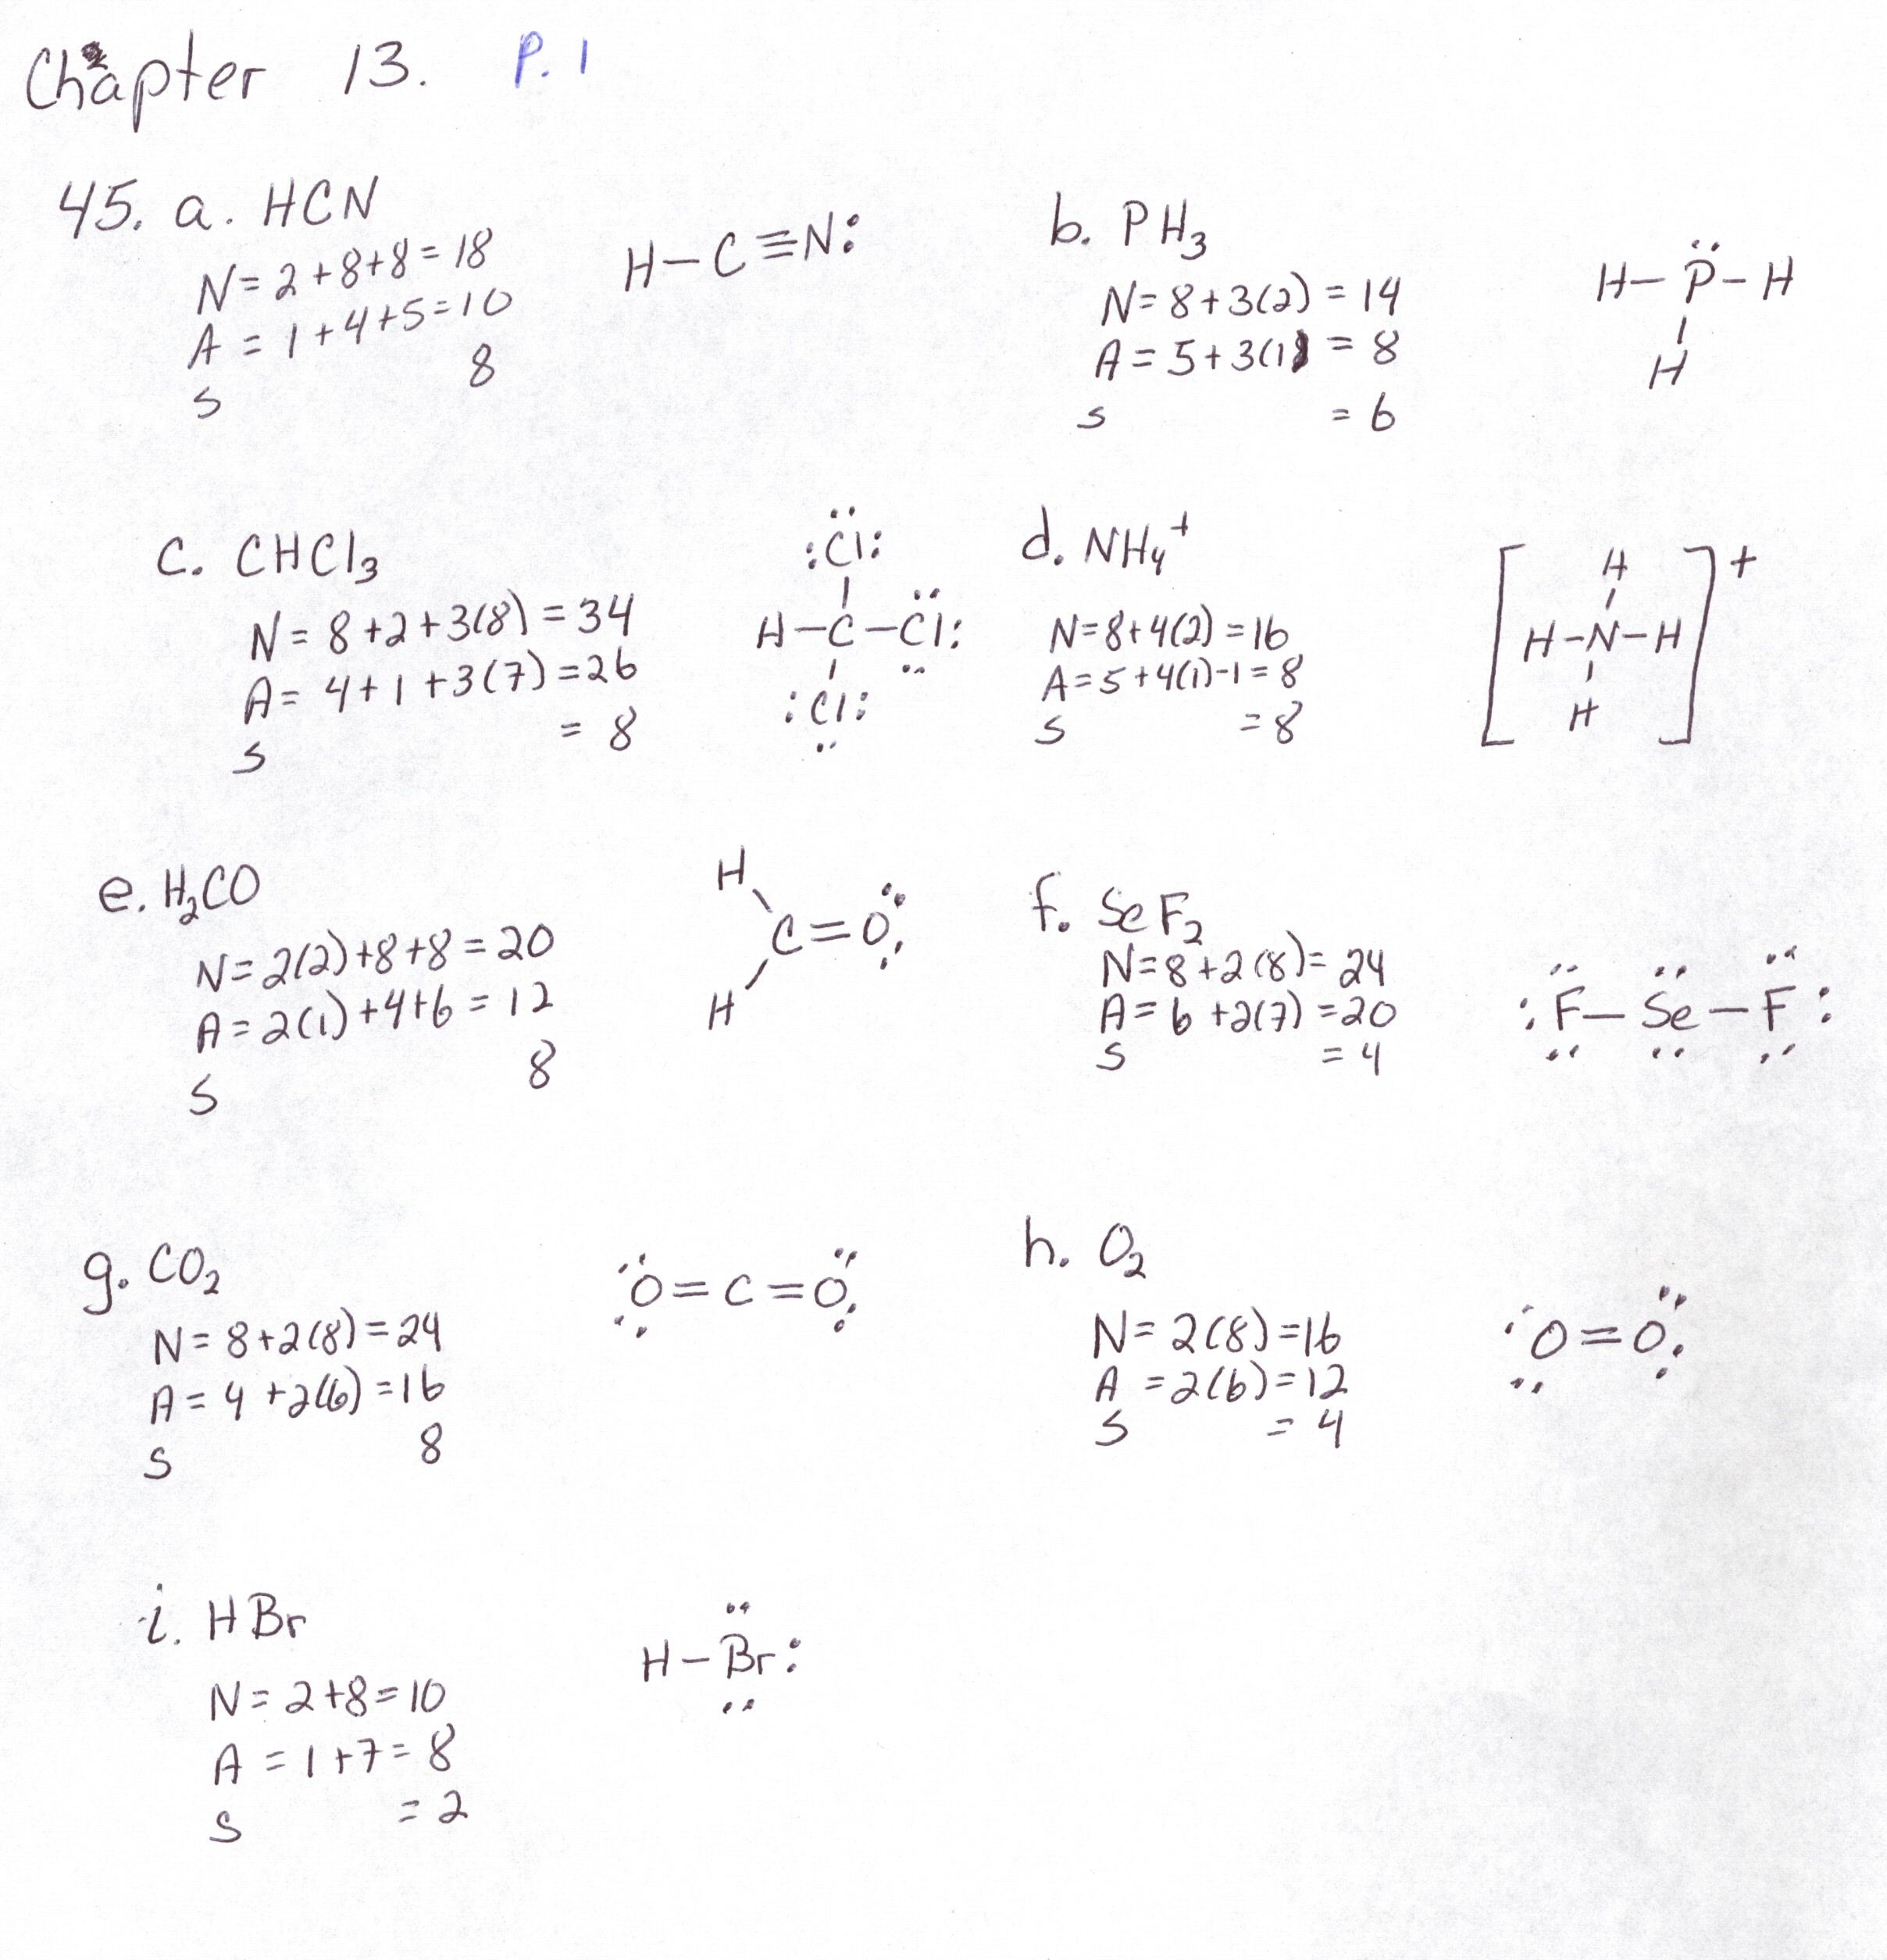 Chapter 13. P. 1
45. a. HCN
N = 2 + 8 + 8 = 18
A = 1 + 4 + 5 = 10
S 8
H—C≡N:
b. PH₃
N = 8 + 3(2) = 14
A = 5 + 3(1) = 8
S = 6
H—P̈—H
H
c. CHCl₃
N = 8 + 2 + 3(8) = 34
A = 4 + 1 + 3(7) = 26
S = 8
:Cl:
H—C—Cl:
:Cl:
d. NH₄⁺
N = 8 + 4(2) = 16
A = 5 + 4(1) - 1 = 8
S = 8
[ H ]⁺
H—N—H
H
e. H₂CO
N = 2(2) + 8 + 8 = 20
A = 2(1) + 4 + 6 = 12
S 8
H
C=O
H
f. SeF₂
N = 8 + 2(8) = 24
A = 6 + 2(7) = 20
S = 4
:F—Se—F:
g. CO₂
N = 8 + 2(8) = 24
A = 4 + 2(6) = 16
S 8
O=C=O
h. O₂
N = 2(8) = 16
A = 2(6) = 12
S = 4
O=O
i. HBr
N = 2 + 8 = 10
A = 1 + 7 = 8
S = 2
H—Br: